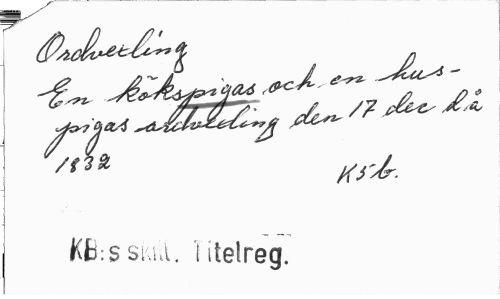 Ordvexling
En kökspigas och en hus-
pigas ordvexling den 17 dec då
1832
K5b.
KB:s skill. Titelreg.